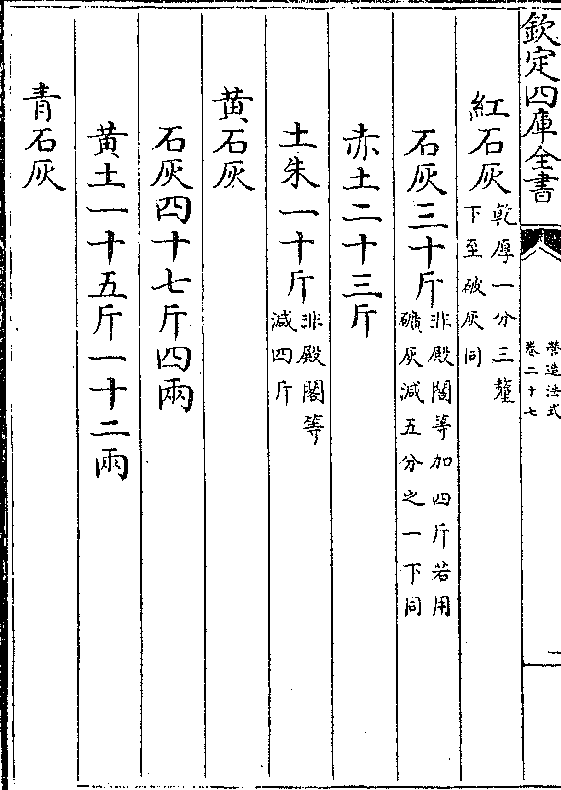 欽定四庫全書
營造法式
卷二十七
二
紅石灰乾厚一分三釐下至破灰同
石灰三十斤非殿閣等加四斤若用礦灰減五分之一下同
赤土二十三斤
土朱一十斤非殿閣等減四斤
黄石灰
石灰四十七斤四兩
黄土一十五斤一十二兩
青石灰